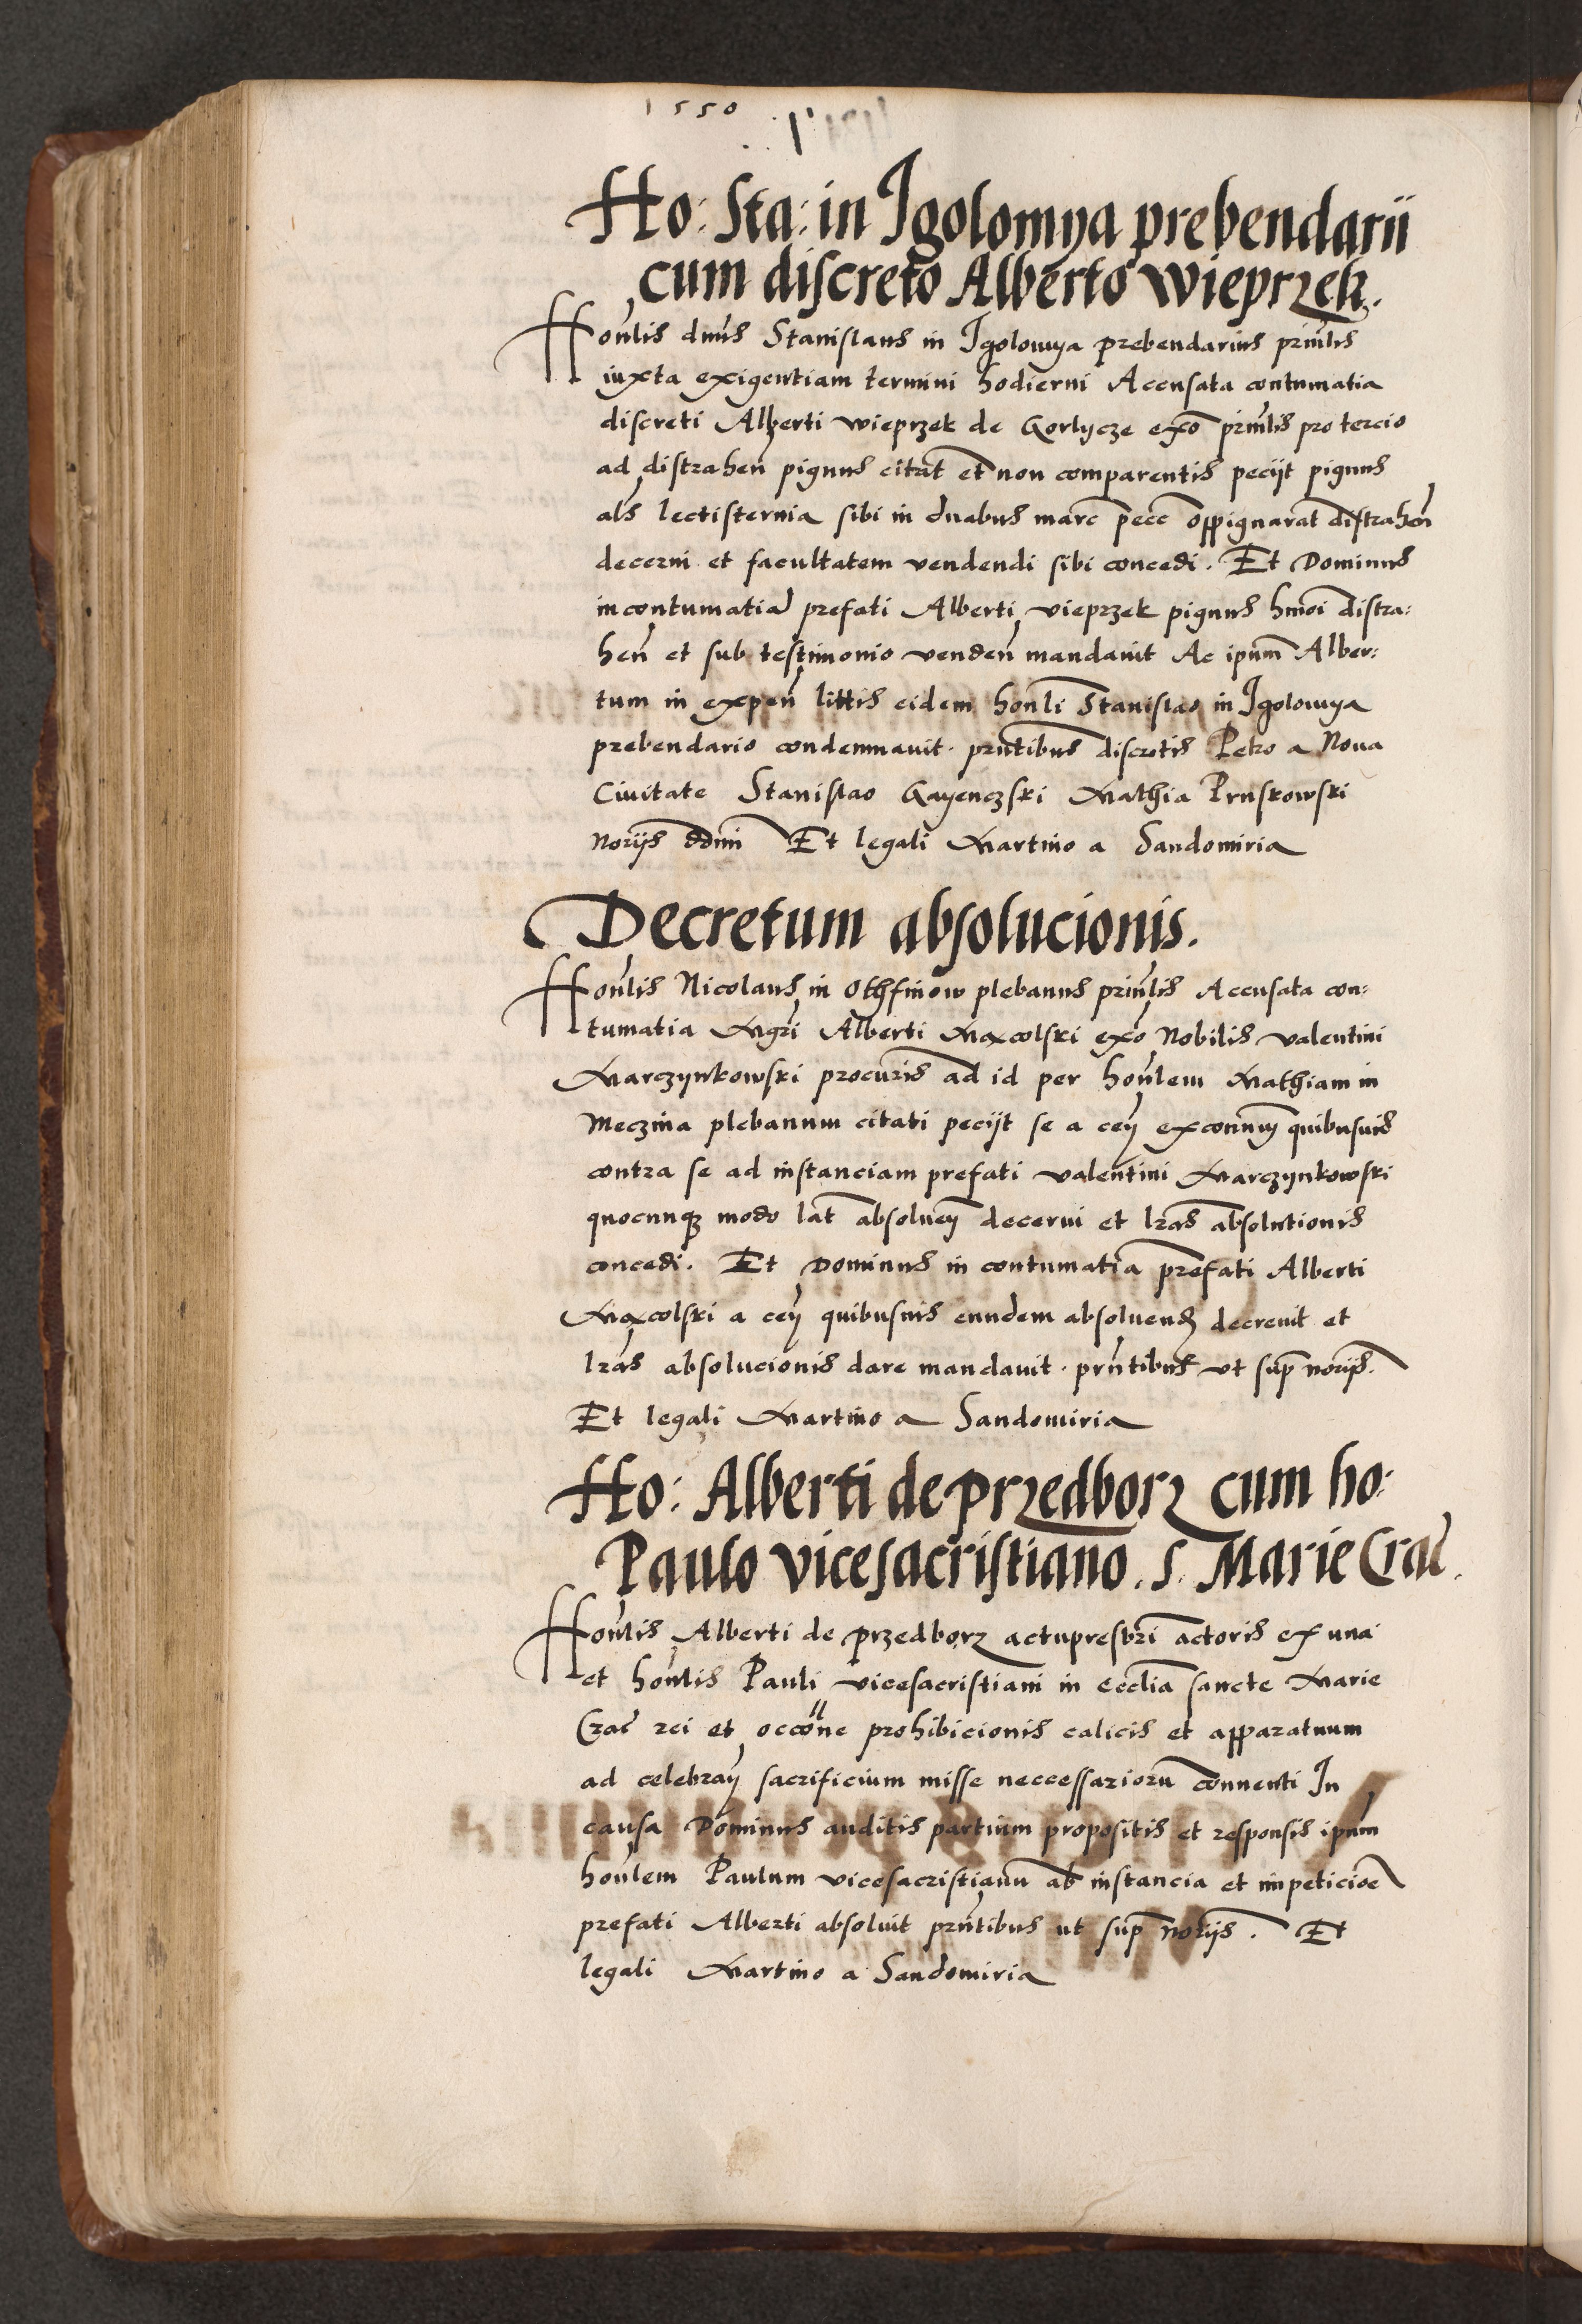 1550
Ho: Sta: in Igolomya prebendarii
cum discreto Alberto Wieprzek.
Honlis dnus Stanislaus in Igolomya prebendarius prinlis
iuxta exigentiam termini hodierni Accusata contumatia
discreti Alberti wieprzek de Gorlycze exo prinlis pro tercio
ad distrahen pignus citat et non comparentis peciit pignus
als lectisternia sibi in duabus marc pecc oppignorat distrahen
decerni et facultatem vendendi sibi concedi. Et Dominus
in contumatia prefati Alberti vieprzek pignus hmoi distra:
hen et sub testimonio venden mandauit Ac ipum Alber:
tum in expen littis eidem honli Stanislao in Igolomya
prebendario condemnauit. pntibus discretis Petro a Noua
Ciuitate Stanislao Gayenczski Mathia Pruskowski
Noriis ddmi Et legali Martino a Sandomiria
Decretum absolucionis.
Honlis Nicolaus in Othfinow plebanus prinlis Accusata con:
tumatia Mgri Alberti Maxcolski exo Nobilis valentini
Marczynkowski procuris ad id per honlem Mathiam in
Meczina plebanum citati peciit se a cen excom quibusuis
contra se ad instanciam prefati valentini Marczynkowski
quocunq modo lat absoluen decerni et lras absolutionis
concedi. Et Dominus in contumatia prefati Alberti
Maxcolski a cen quibusuis eundem absoluend decreuit et
lras absolucionis dare mandauit. prntibus vt sup noriis.
Et legali Martino a Sandomiria
Ho: Alberti de przedborz cum ho:
Paulo vicesacristiano. S. Marie Crac.
Honlis Alberti de przedborz actuprestri actoris ex una
et honlis Pauli vicesacristiani in Ecclia sancte Marie
Crac rei et occone prohibicionis calicis et apparatuum
ad celebran sacrificium misse neccessarioru conuenti In
causa Dominus auditis partium propositis et responsis ipum
honlem Paulum vicesacristianu ab instancia et impeticioe
prefati Alberti absoluit prntibus ut sup noriis. Et
legali Martino a Sandomiria